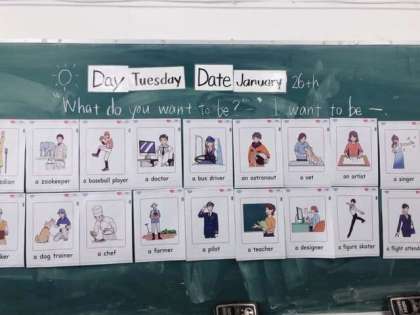 Day Tuesday Date January 26th
What do you want to be? — I want to be —.
a zookeeper a baseball player a doctor a bus driver an astronaut a vet an artist a singer
a dog trainer a chef a farmer a pilot a teacher a designer a figure skater a flight attend